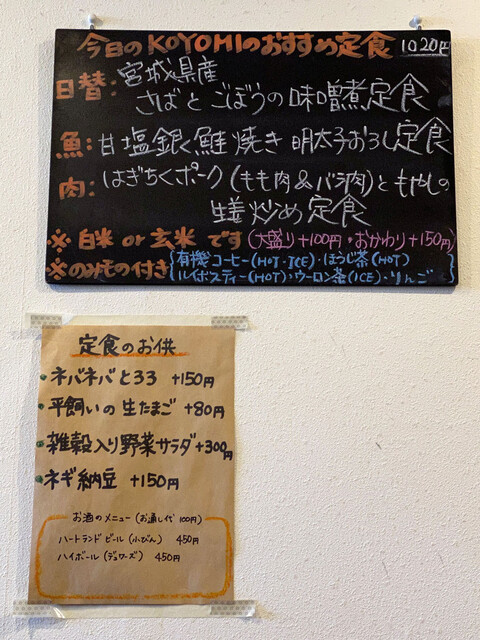 今日のKOYOMIのおすすめ定食 1020円
日替: 宮城県産
さばとごぼうの味噌煮定食
魚: 甘塩銀鮭焼き 明太子おろし定食
肉: はぎちくポーク(もも肉&バラ肉)ともやしの
生姜炒め定食
※白米 or 玄米です(大盛り+100円・おかわり+150円)
※のみもの付き{有機コーヒー(HOT・ICE)・ほうじ茶(HOT)
ルイボスティー(HOT)・ウーロン茶(ICE)・りんご}
定食のお供
・ネバネバとろろ +150円
・平飼いの生たまご +80円
・雑穀入り野菜サラダ+300円
・ネギ納豆 +150円
お酒のメニュー(お通し代 100円)
ハートランドビール(小びん) 450円
ハイボール(デュワーズ) 450円